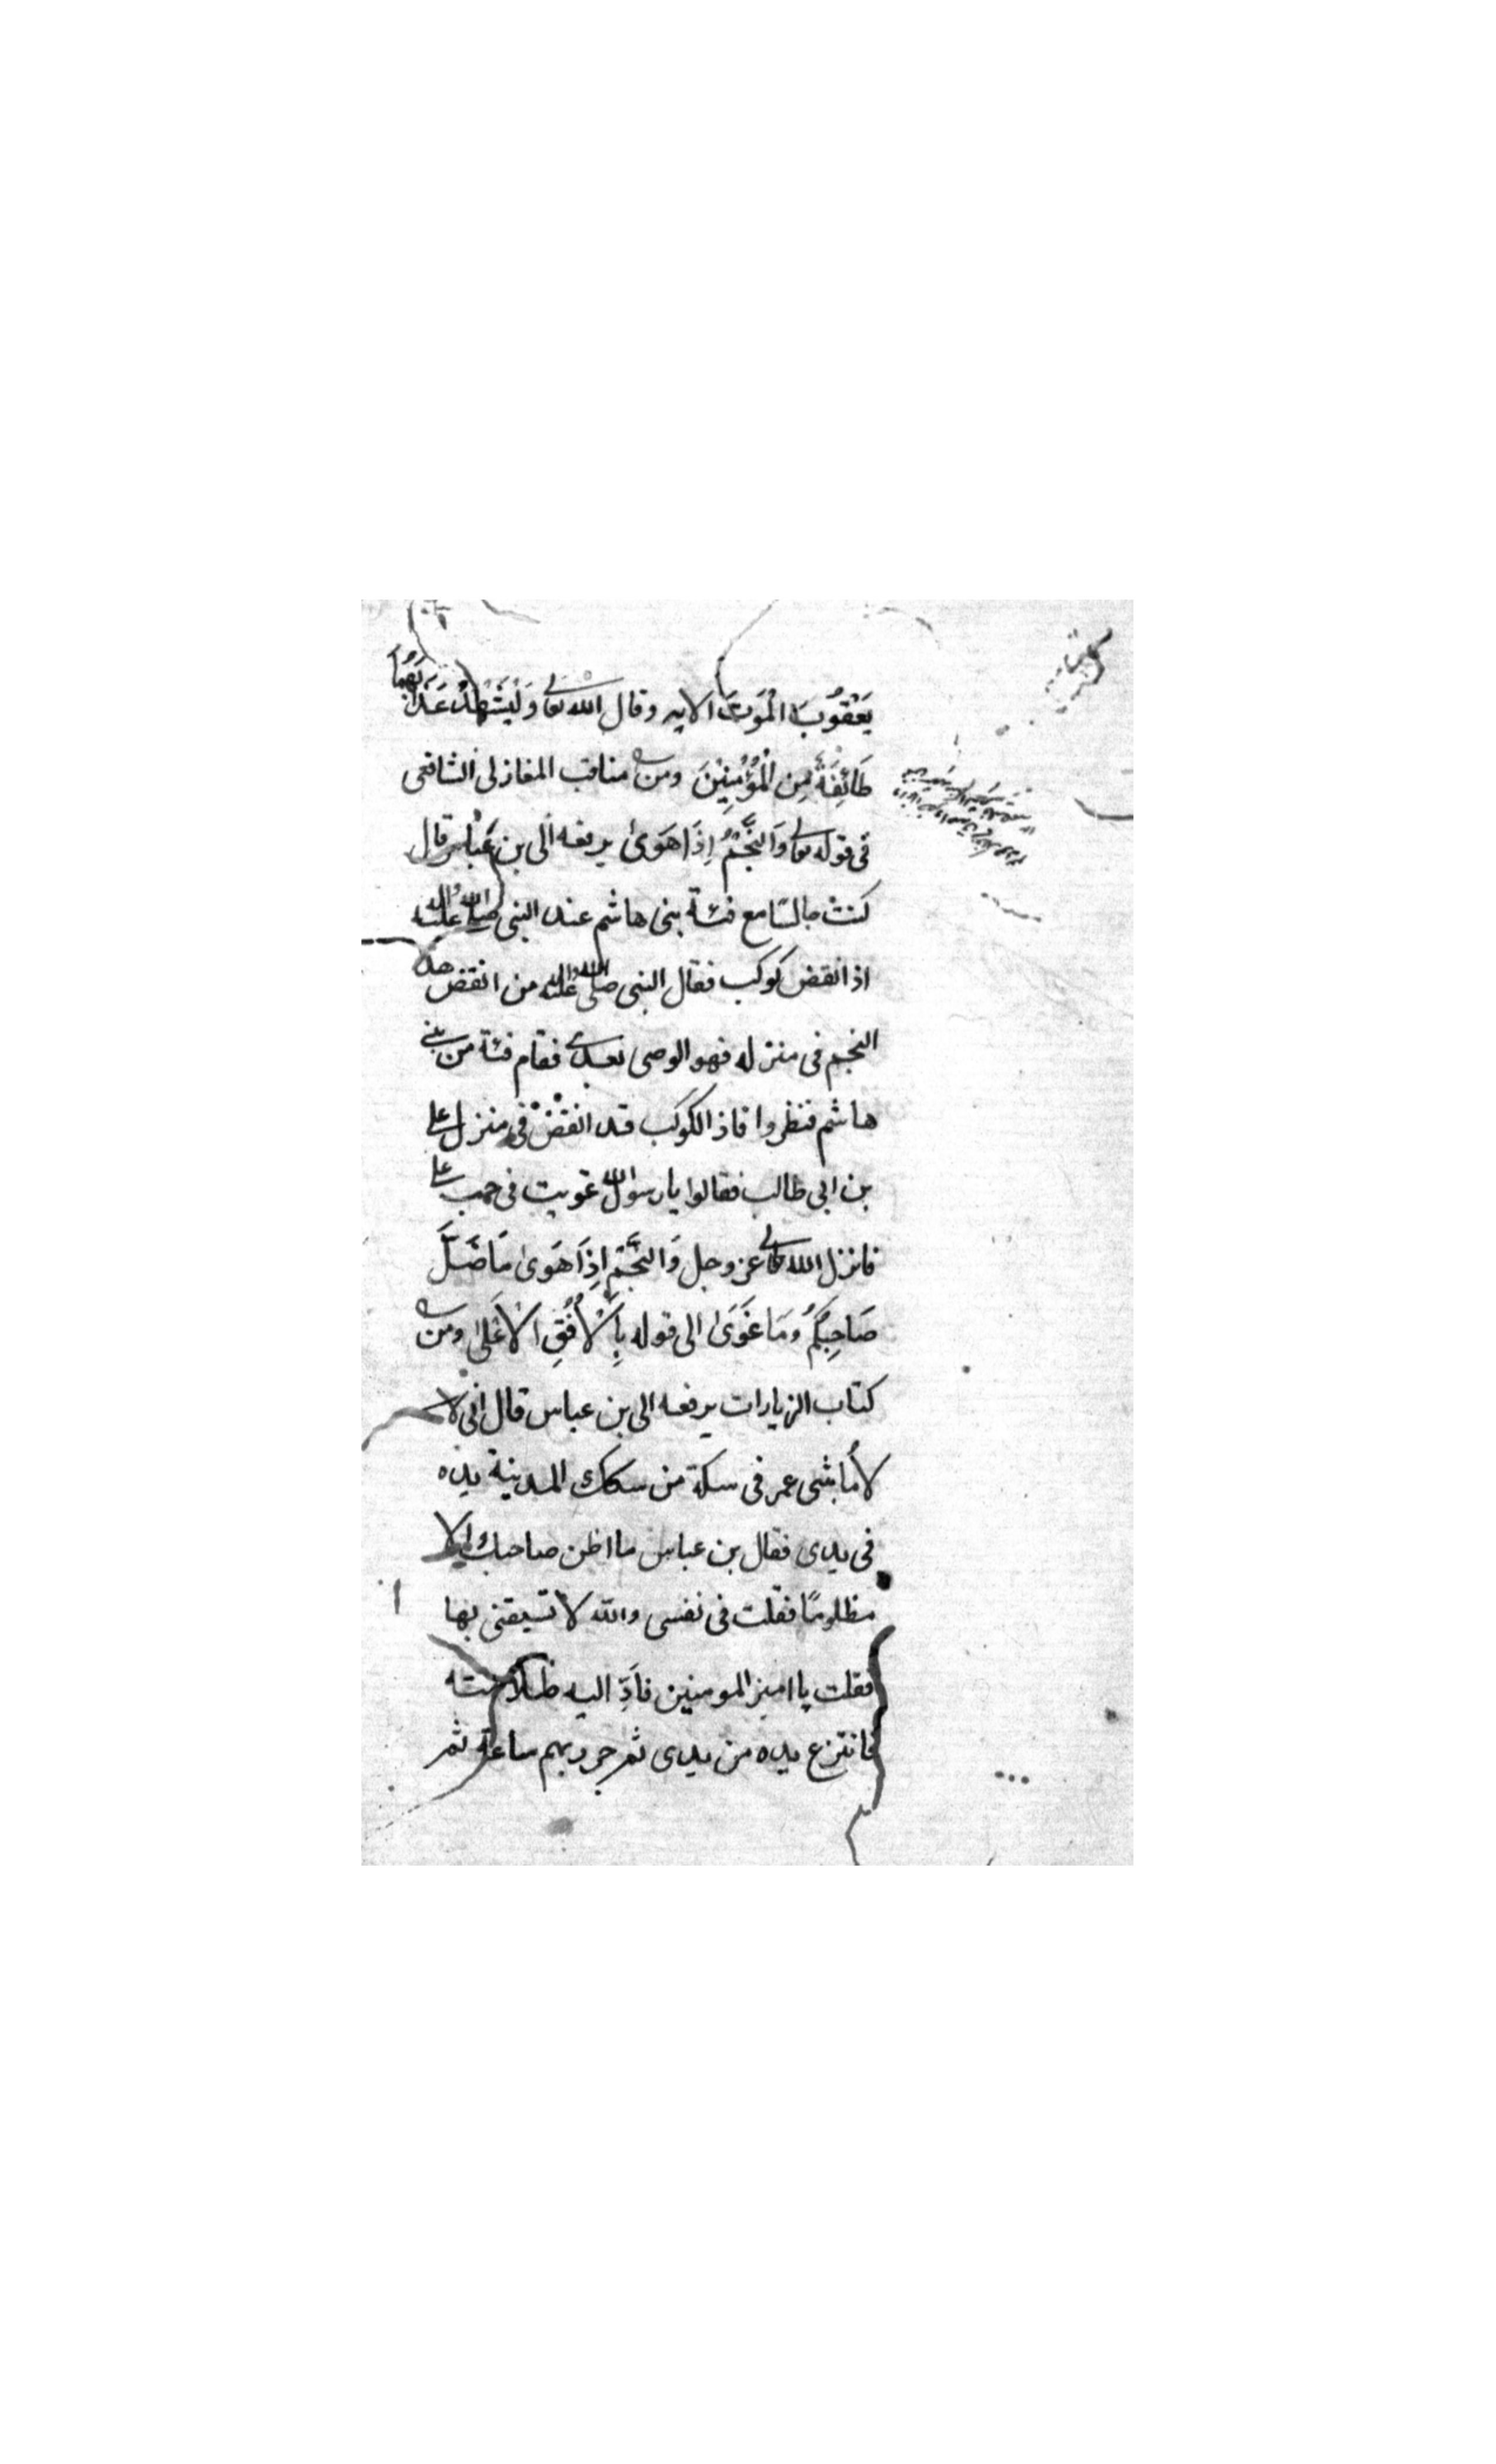 يَعْقُوبَ الْمَوْتَ الايه وقال الله تعالى وَلْيَشْهَدْ عَذَابَهُمَا
طَائِفَةٌ مِن الْمُؤْمِنِيْنَ ومن مناقب المغازلى الشافعى
فى قوله تعالى وَالنَّجْمِ اِذَا هَوَىٰ يرفعه الى بن عَبّاس قال
كنت جالسًا مع فئة بنى هاشم عند النبى صلى الله عليه واله
اذا نقض كوكب فقال النبى صلى الله عليه واله من انقض هذ
النجم فى منزله فهو الوصى بعدى فقام فئة من بنى
هاشم فنظروا فاذ الكوكب قد انقضّ فى منزل على
بن ابى طالب فقالوا يا رسول الله غويت فى حب على
فانزل الله تعالى عز وجل وَالنَّجْمِ اِذَا هَوىٰ مَا ضَلَّ
صَاحِبُكُمْ وَمَا غَوَىٰ الى قوله بِالْاُفُقِ الْاَعْلىٰ ومن
كتاب الزيارات يرفعه الى بن عباس قال انى لا
لاُماشى عمر فى سكة من سكك المدينة يده
فى يدى فقال بن عباس ما اظن صاحبك الا
مظلومًا فقلت فى نفسى والله لا تسبقنى بها
فقلت يا امير المومنين فاَدِّ اليه ظلامته
فانتزع يده من يدى ثم جرد بهم ساعة ثم